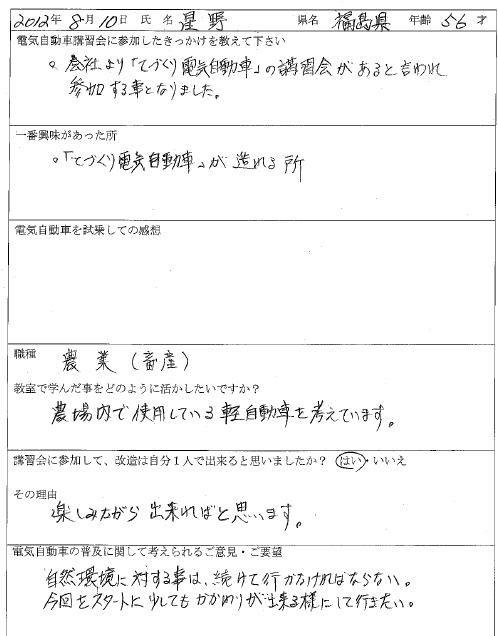 2012年 8月10日 氏名 星野 県名 福島県 年齢 56才
電気自動車講習会に参加したきっかけを教えて下さい
○会社より「てづくり電気自動車」の講習会があると言われ
参加する事となりました。
一番興味があった所
○「てづくり電気自動車」が造れる所
電気自動車を試乗しての感想
職種 農業(畜産)
教室で学んだ事をどのように活かしたいですか?
農場内で使用している軽自動車を考えています。
講習会に参加して、改造は自分1人で出来ると思いましたか? はい・いいえ
その理由
楽しみながら出来ればと思います。
電気自動車の普及に関して考えられるご意見・ご要望
自然環境に対する事は、続けて行かなければならない。
今回をスタートに少しでもかかわりが出来る様にして行きたい。